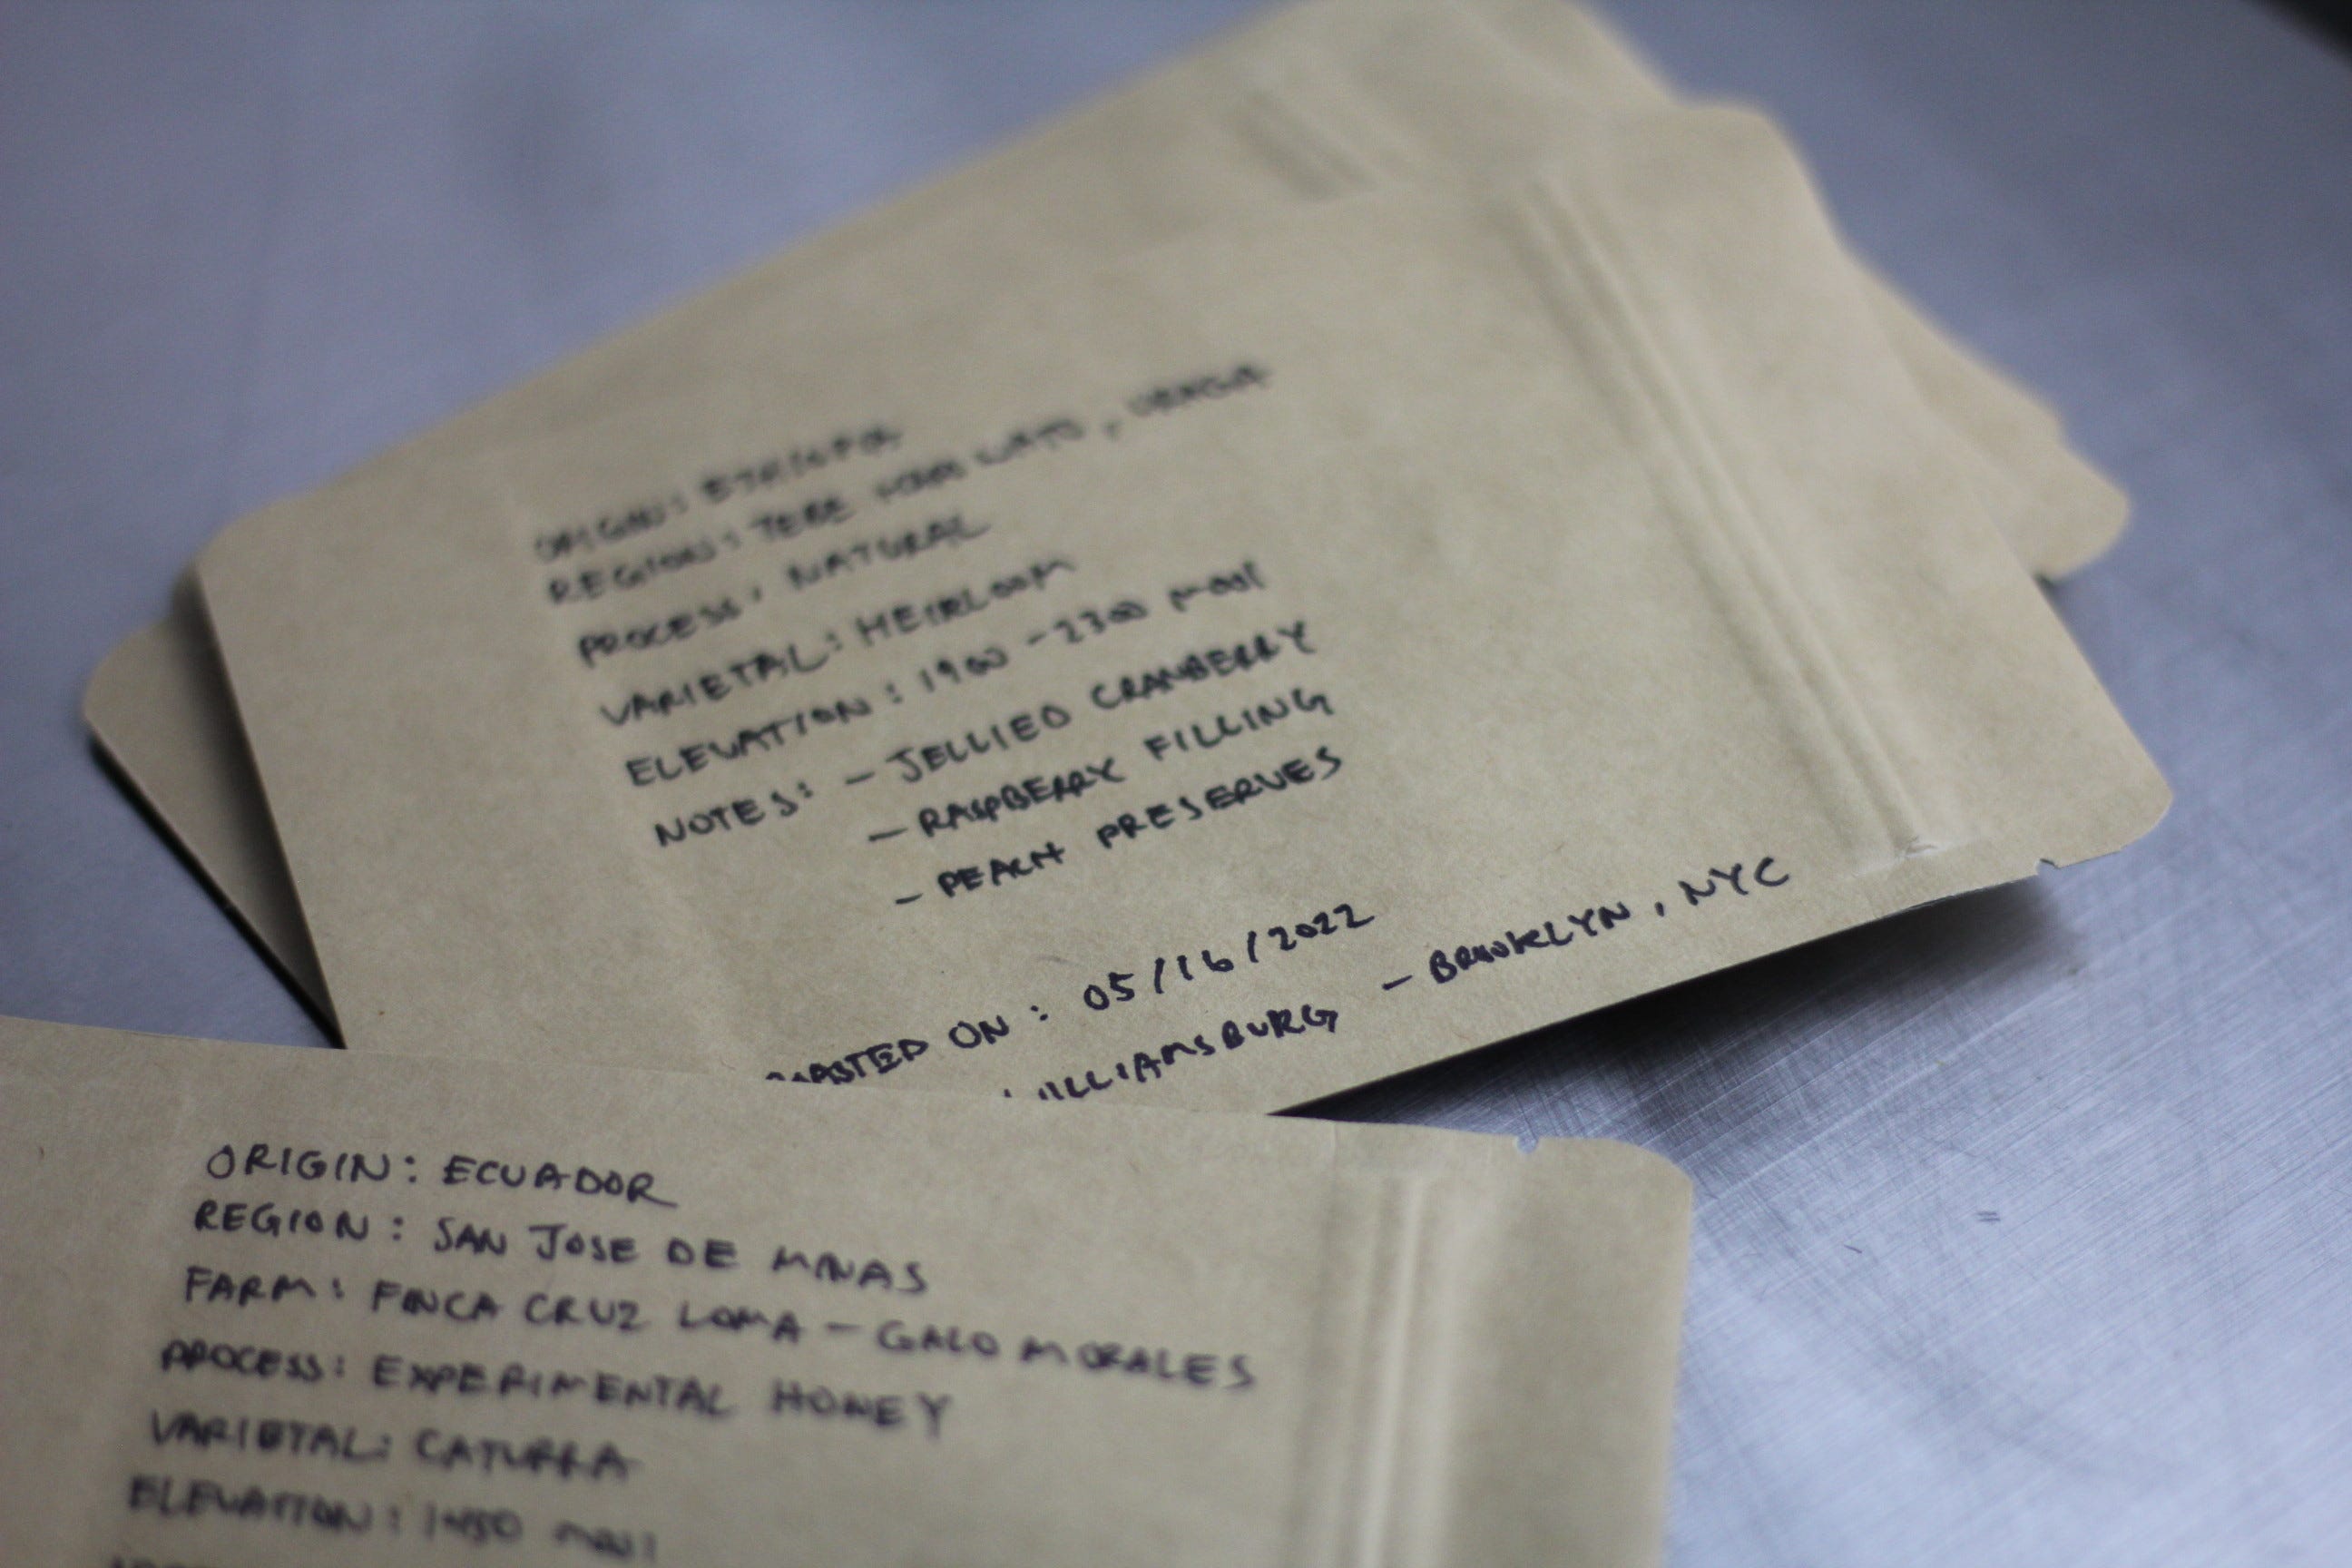 ORIGIN: ETHIOPIA
REGION: TERE
PROCESS: NATURAL
VARIETAL: HEIRLOOM
ELEVATION: 1900 - 2300 masl
NOTES: - JELLIED CRANBERRY
- RASPBERRY FILLING
- PEACH PRESERVES
ROASTED ON: 05/16/2022
WILLIAMSBURG - BROOKLYN, NYC
ORIGIN: ECUADOR
REGION: SAN JOSE DE MINAS
FARM: FINCA CRUZ LOMA - GALO MORALES
PROCESS: EXPERIMENTAL HONEY
VARIETAL: CATURRA
ELEVATION: 1450 masl